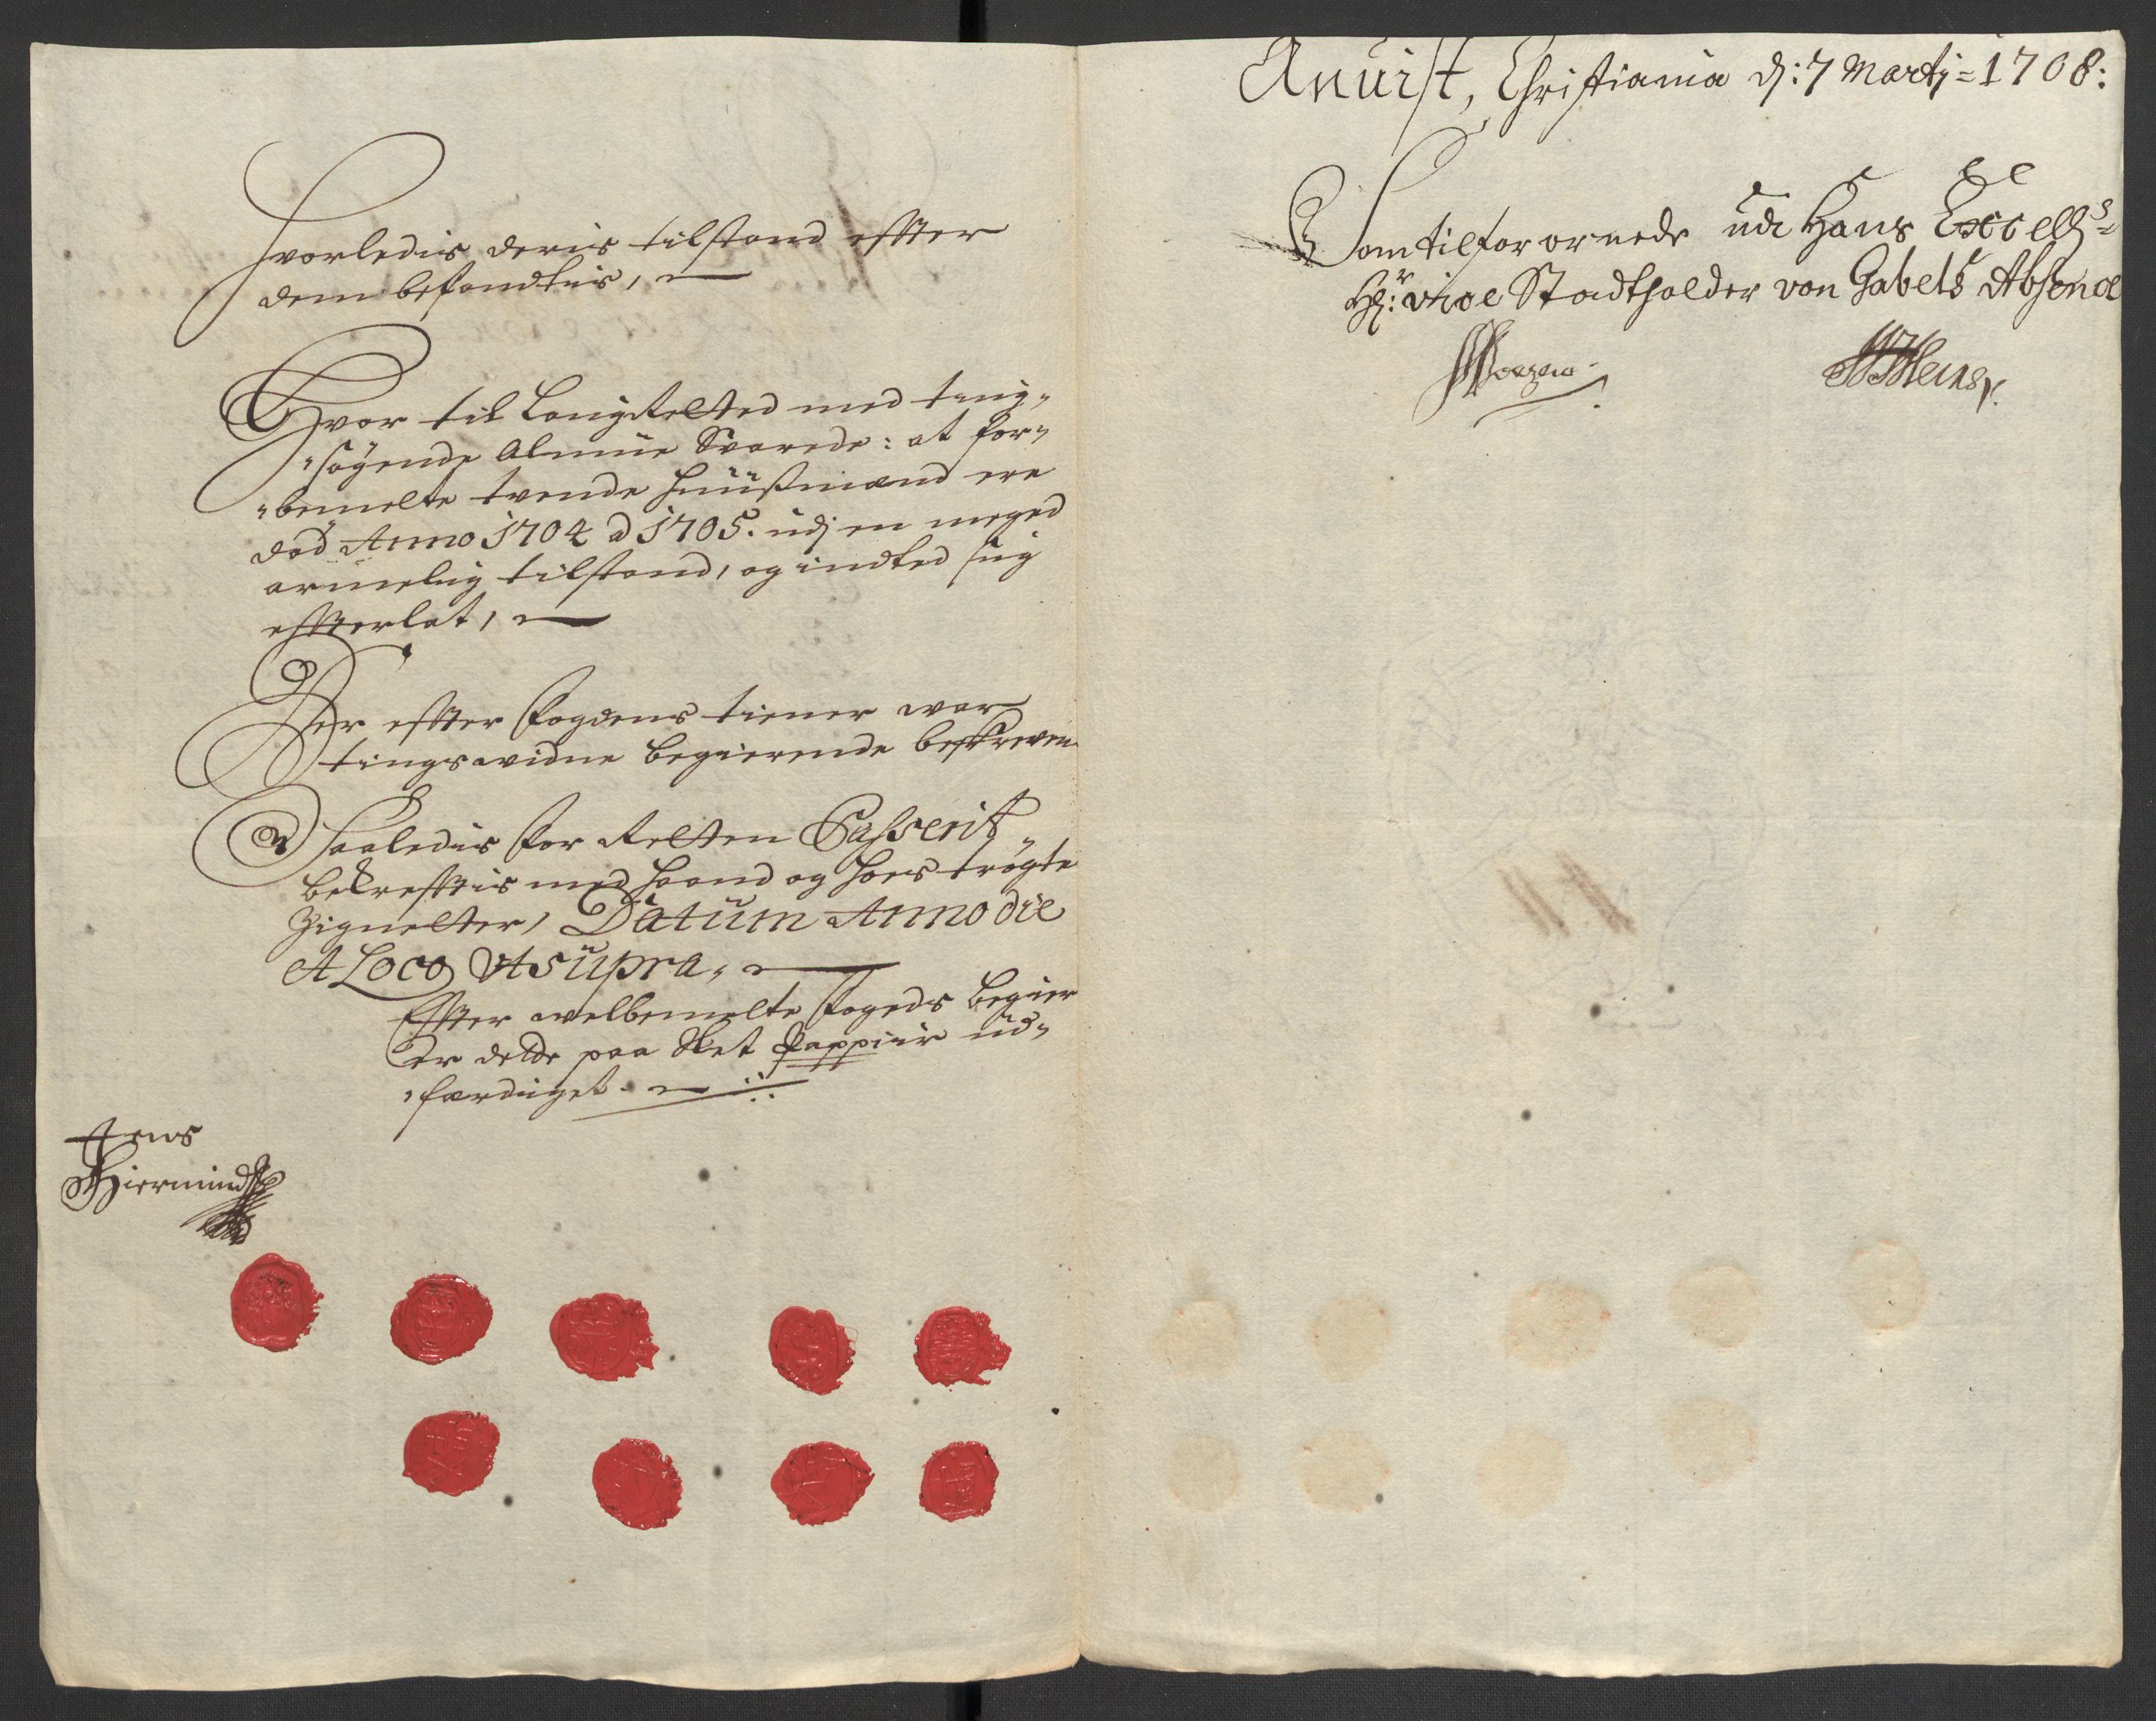 Hvorledis deris tilstand effter
dem befandtis,
Hvor til Laugretted med ting„
„søgende Almüe Svarede: at for„
„bemelte tvende Huüßmænd ere
død Anno 1704 a 1705. udj en meged
armelig tilstand, og indted sig
effterlat,
Der effter fogdens tiener war
tingswidne begierende beskrewen
Saaledis for Retten Passerit
bekrefftis med haand og hoes trögte
Zignetter, Datum Anno die
et Loco Ut supra,
Effter welbemelte fogeds begier
er dette paa Slet Pappiir üd„
„færdiget.
Jens
Anvist, Christiania d: 7 Martj = 1708:
Som tilforornede udi Hans Excell:s
Hr: vice Stadtholder von Gabels Absence